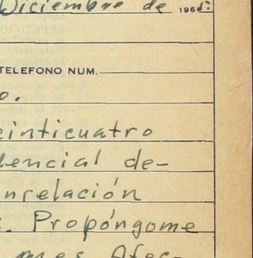 Diciembre de 196
TELEFONO NUM.
o.
einticuatro
dencial de-
nrelación
. Propóngome
mes Afec-